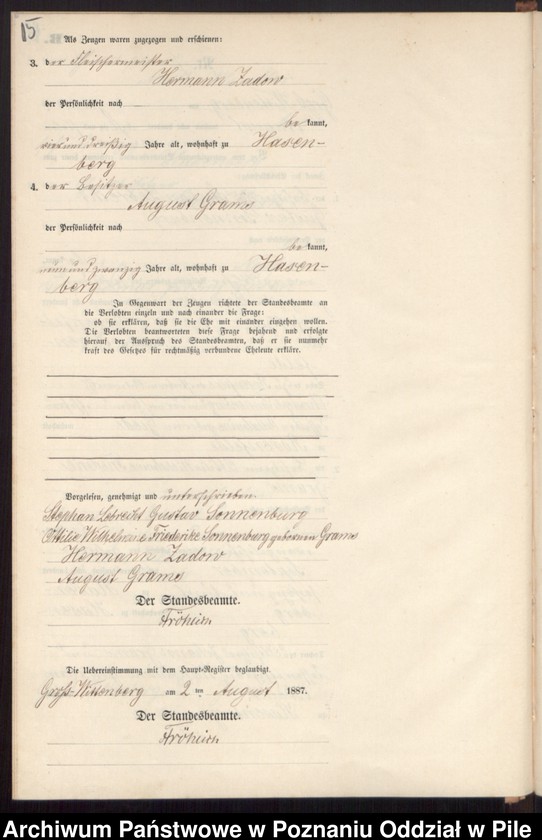 15
Als Zeugen waren zugezogen und erschienen:
3. der Fleischermeister
Hermann Zadow
der Persönlichkeit nach
be kannt,
vierunddreißig Jahre alt, wohnhaft zu Hasen-
berg
4. der Besitzer
August Grams
der Persönlichkeit nach
be kannt,
neunundzwanzig Jahre alt, wohnhaft zu Hasen-
berg
In Gegenwart der Zeugen richtete der Standesbeamte an
die Verlobten einzeln und nach einander die Frage:
ob sie erklären, daß sie die Ehe mit einander eingehen wollen.
Die Verlobten beantworteten diese Frage bejahend und erfolgte
hierauf der Ausspruch des Standesbeamten, daß er sie nunmehr
kraft des Gesetzes für rechtmäßig verbundene Eheleute erkläre.
Vorgelesen, genehmigt und unterschrieben.
Stephan Lebrecht Gustav Sonnenburg
Ottilie Wilhelmine Friederike Sonnenburg geborenen Grams
Hermann Zadow
August Grams
Der Standesbeamte.
Die Uebereinstimmung mit dem Haupt-Register beglaubigt
Groß-Wittenberg am 2 ten August 1887.
Der Standesbeamte.
Archiwum Państwowe w Poznaniu Oddział w Pile